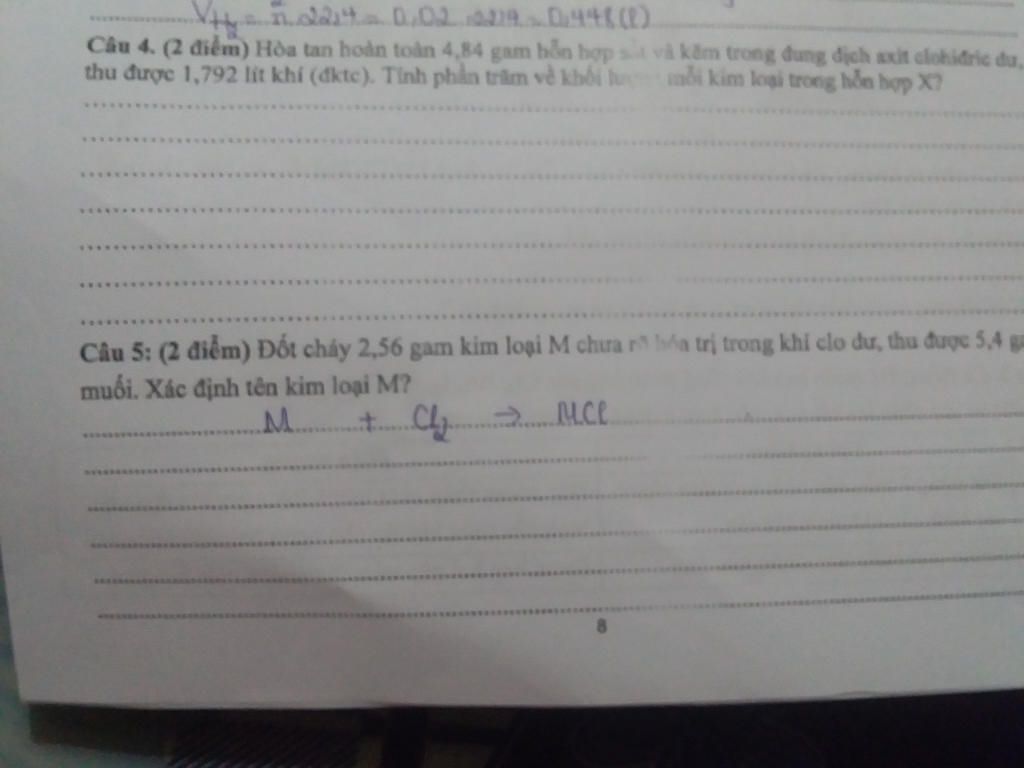 V H2 = n.22,4 = 0,02 . 22,4 = 0,448(l)
Câu 4. (2 điểm) Hòa tan hoàn toàn 4,84 gam hỗn hợp sắt và kẽm trong dung dịch axit clohiđric dư,
thu được 1,792 lít khí (đktc). Tính phần trăm về khối lượng mỗi kim loại trong hỗn hợp X?
Câu 5: (2 điểm) Đốt cháy 2,56 gam kim loại M chưa rõ hóa trị trong khí clo dư, thu được 5,4
muối. Xác định tên kim loại M?
M + Cl2 → MCl
8